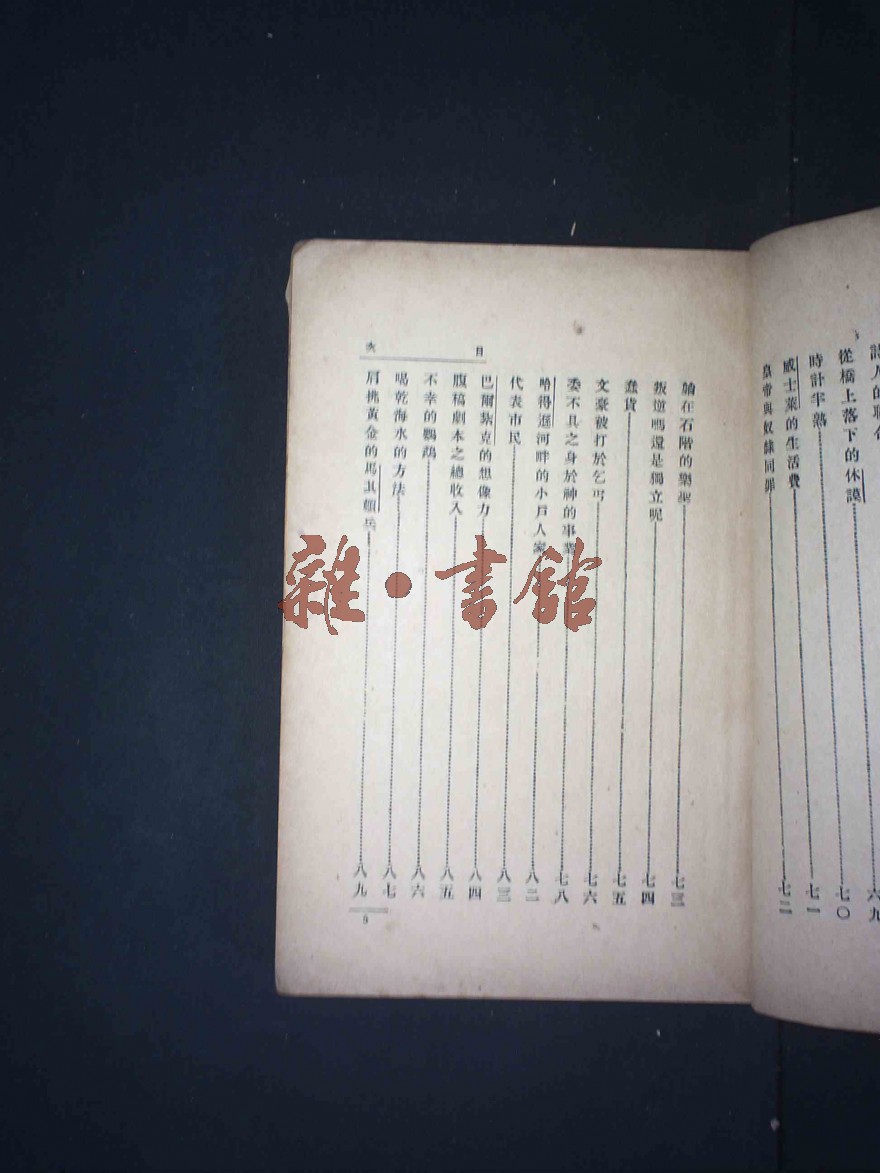 詩人的聯合……六九
從橋上落下的休謨……七〇
時計牢熟……七一
威士萊的生活費……七二
皇帝與奴隸同罪
目次
躺在石階的樂聖……七三
叛逆嗎還是獨立呢……七四
蠢貨……七五
文豪被打於乞丐……七六
委不具之身於神的事業……七八
哈得遜河畔的小戶人家……八二
代表市民……八三
巴爾紮克的想像力……八四
腹稿劇本之總收入……八五
不幸的鸚鵡……八六
喝乾海水的方法……八七
肩挑黃金的馬其頓兵……八九
9
雜·書館